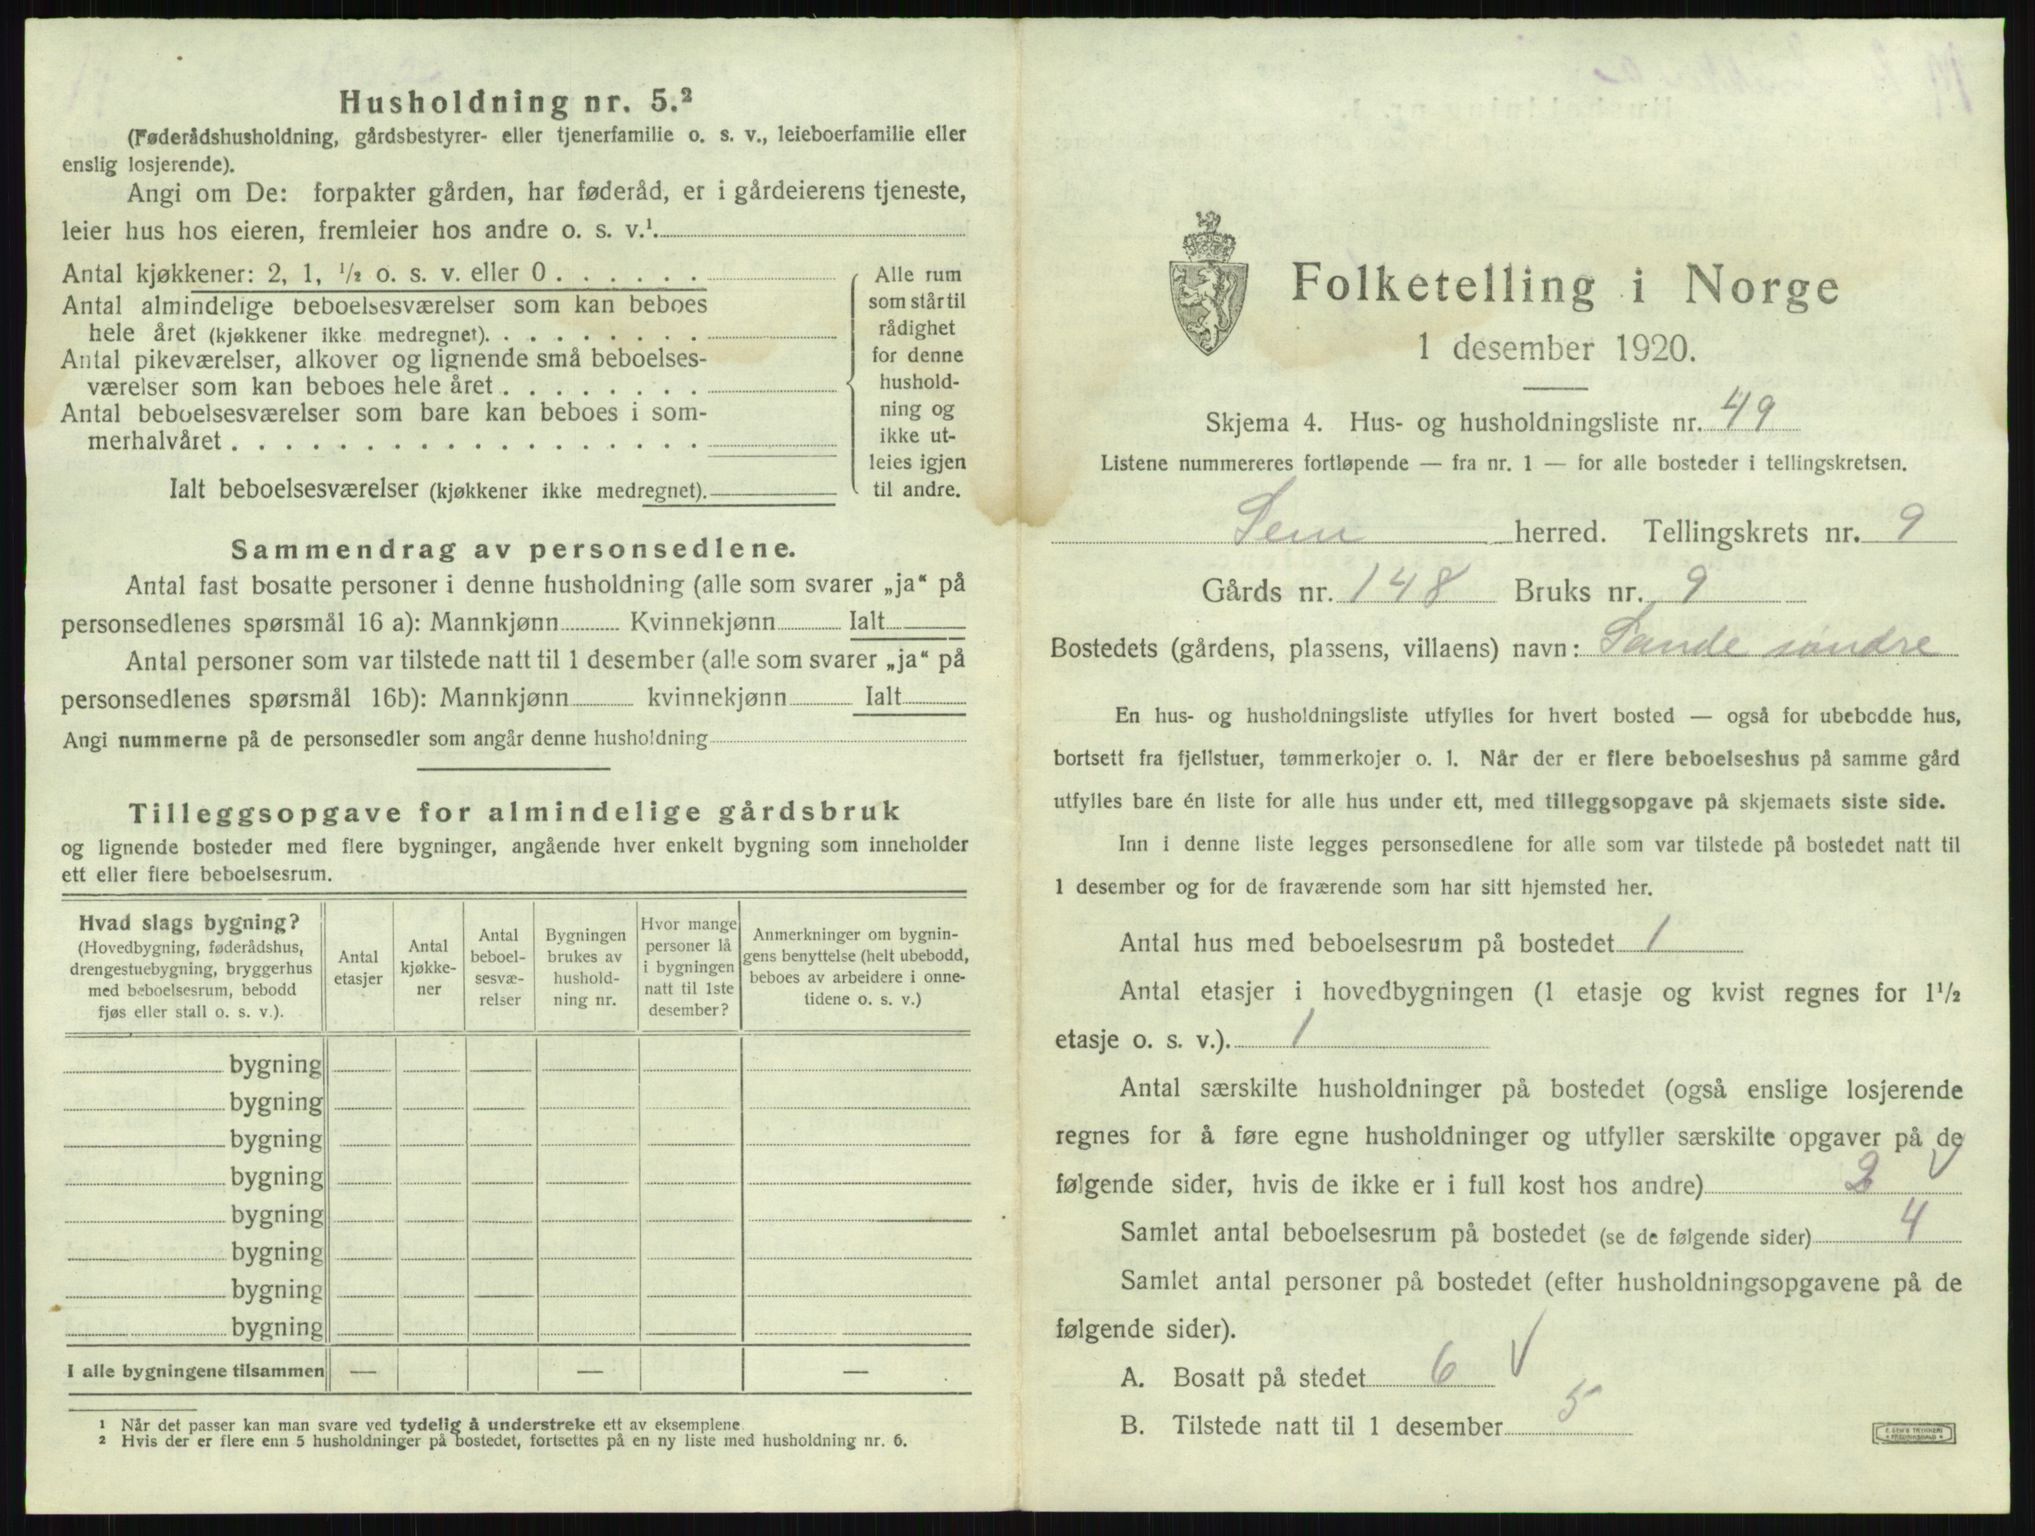 Husholdning nr. 5.²
(Føderådshusholdning, gårdsbestyrer- eller tjenerfamilie o. s. v., leieboerfamilie eller
enslig losjerende).
Angi om De: forpakter gården, har føderåd, er i gårdeierens tjeneste,
leier hus hos eieren, fremleier hos andre o. s. v.¹.
Antal kjøkkener: 2, 1, ½ o. s. v. eller 0 . . . . . .
Antal almindelige beboelsesværelser som kan beboes
hele året (kjøkkener ikke medregnet). . . . . . . . .
Antal pikeværelser, alkover og lignende små beboelses-
værelser som kan beboes hele året . . . . . . . .
Antal beboelsesværelser som bare kan beboes i som-
merhalvåret . . . . . . . . . . . . . . . . . .
Ialt beboelsesværelser (kjøkkener ikke medregnet).
Alle rum
som står til
rådighet
for denne
hushold-
ning og
ikke ut-
leies igjen
til andre.
Sammendrag av personsedlene.
Antal fast bosatte personer i denne husholdning (alle som svarer „ja“ på
personsedlenes spørsmål 16 a): Mannkjønn Kvinnekjønn Ialt
Antal personer som var tilstede natt til 1 desember (alle som svarer „ja“ på
personsedlenes spørsmål 16b): Mannkjønn kvinnekjønn Ialt
Angi nummerne på de personsedler som angår denne husholdning
Tilleggsopgave for almindelige gårdsbruk
og lignende bosteder med flere bygninger, angående hver enkelt bygning som inneholder
ett eller flere beboelsesrum.
Hvad slags bygning?
(Hovedbygning, føderådshus,
drengestuebygning, bryggerhus
med beboelsesrum, bebodd
fjøs eller stall o. s. v.).
Antal
etasjer
Antal
kjøkke-
ner
Antal
beboel-
sesvæ-
relser
Bygningen
brukes av
hushold-
ning nr.
Hvor mange
personer lå
i bygningen
natt til 1ste
desember?
Anmerkninger om bygnin-
gens benyttelse (helt ubebodd,
beboes av arbeidere i onne-
tidene o. s. v.)
bygning
bygning
bygning
bygning
bygning
bygning
bygning
bygning
I alle bygningene tilsammen — — —
¹ Når det passer kan man svare ved tydelig å understreke ett av eksemplene.
² Hvis der er flere enn 5 husholdninger på bostedet, fortsettes på en ny liste med husholdning nr. 6.
Folketelling i Norge
1 desember 1920.
Skjema 4. Hus- og husholdningsliste nr. 49
Listene nummereres fortløpende — fra nr. 1 — for alle bosteder i tellingskretsen.
Sem herred. Tellingskrets nr. 9
Gårds nr. 148 Bruks nr. 9
Bostedets (gårdens, plassens, villaens) navn: Sande søndre
En hus- og husholdningsliste utfylles for hvert bosted — også for ubebodde hus,
bortsett fra fjellstuer, tømmerkojer o. l. Når der er flere beboelseshus på samme gård
utfylles bare én liste for alle hus under ett, med tilleggsopgave på skjemaets siste side.
Inn i denne liste legges personsedlene for alle som var tilstede på bostedet natt til
1 desember og for de fraværende som har sitt hjemsted her.
Antal hus med beboelsesrum på bostedet 1
Antal etasjer i hovedbygningen (1 etasje og kvist regnes for 1½
etasje o. s. v.). 1
Antal særskilte husholdninger på bostedet (også enslige losjerende
regnes for å føre egne husholdninger og utfyller særskilte opgaver på de
følgende sider, hvis de ikke er i full kost hos andre) 2 V
Samlet antal beboelsesrum på bostedet (se de følgende sider) 4
Samlet antal personer på bostedet (efter husholdningsopgavene på de
følgende sider).
A. Bosatt på stedet 6 V
B. Tilstede natt til 1 desember 5